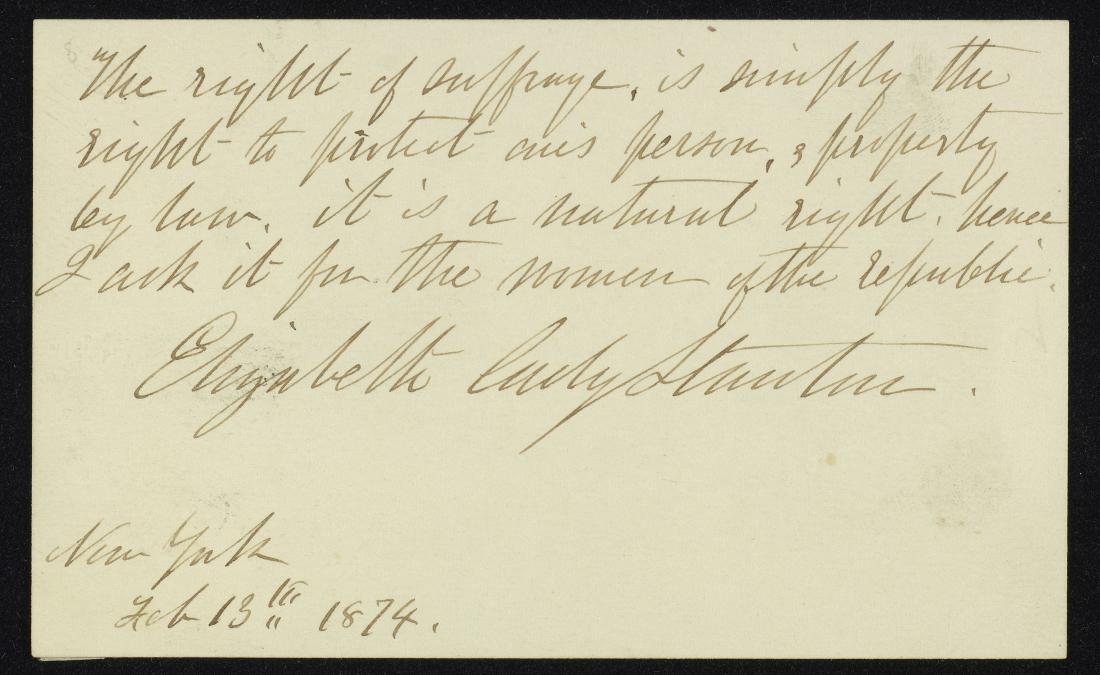 The right of suffrage, is simply the
right to protect one's person, & property
by law. it is a natural right. hence
I ask it for the women of the republic.
Elizabeth Cady Stanton.
New York
Feb 13th 1874.